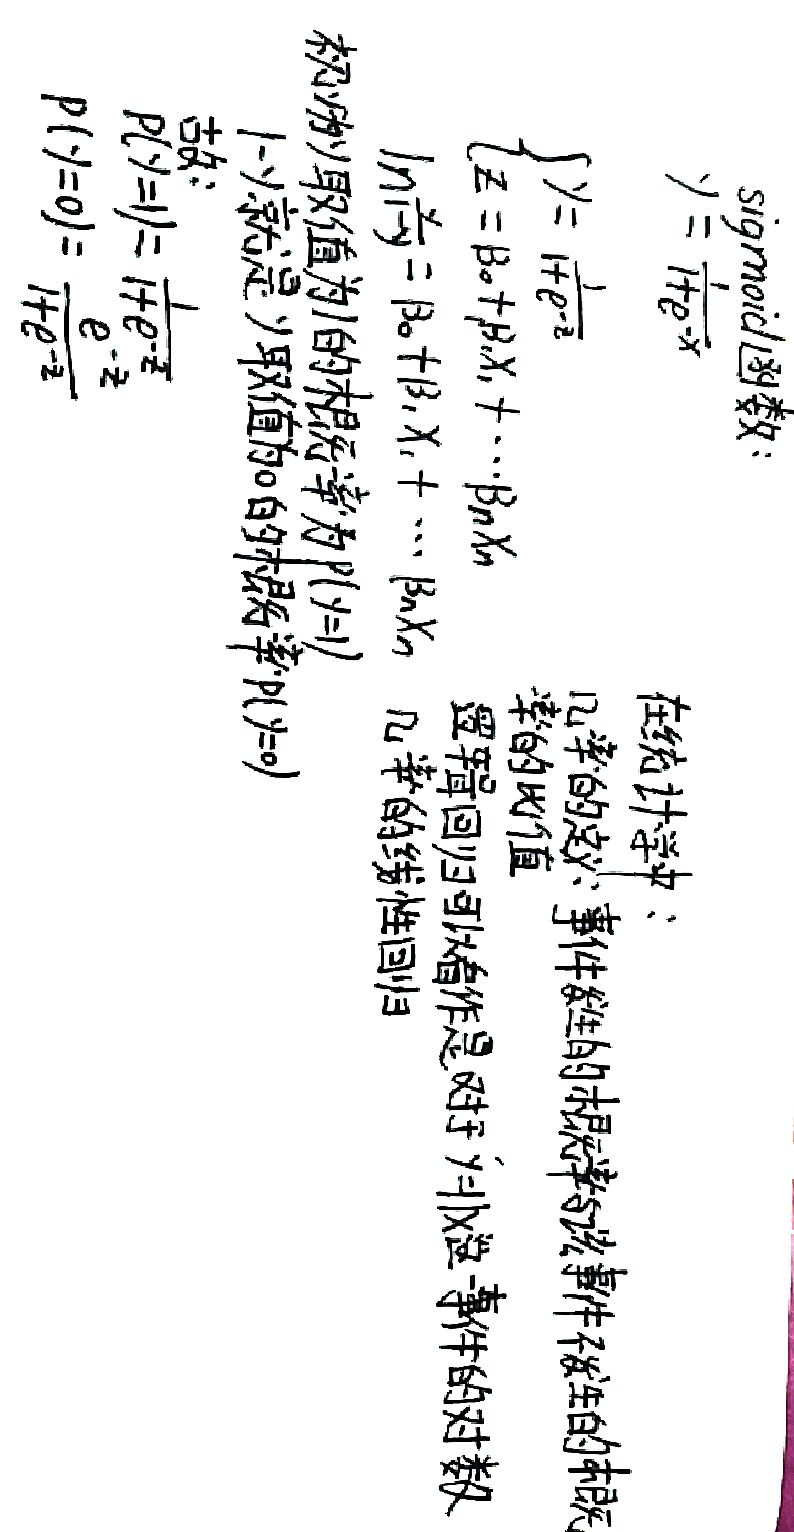 sigmoid函数:
y = 1/(1+e^-x)
{ y = 1/(1+e^-z)
z = β₀+β₁x₁+…βnxn
ln y/(1-y) = β₀+β₁x₁+…βnxn
权为y取值为1的概率为P(y=1)
1-y就是y取值为0的概率P(y=0)
故:
P(y=1)= 1/(1+e^-z)
P(y=0)= e^-z/(1+e^-z)
在统计学中:
几率的定义:事件发生的概率与该事件不发生的概
率的比值
逻辑回归可以看作是对于y=1|x这一事件的对数
几率的线性回归